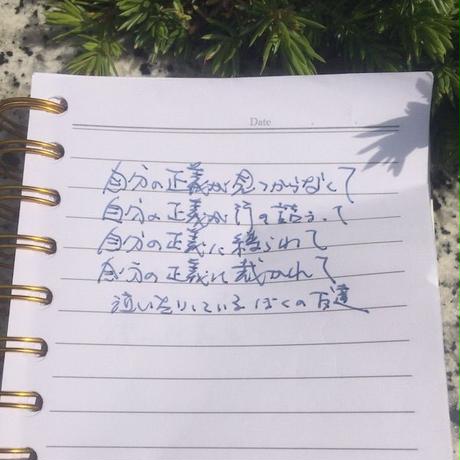 Date
自分の正義が見つからなくて
自分の正義が行き詰まって
自分の正義に縛られて
自分の正義に裁かれて
泣いたりしているぼくの友達